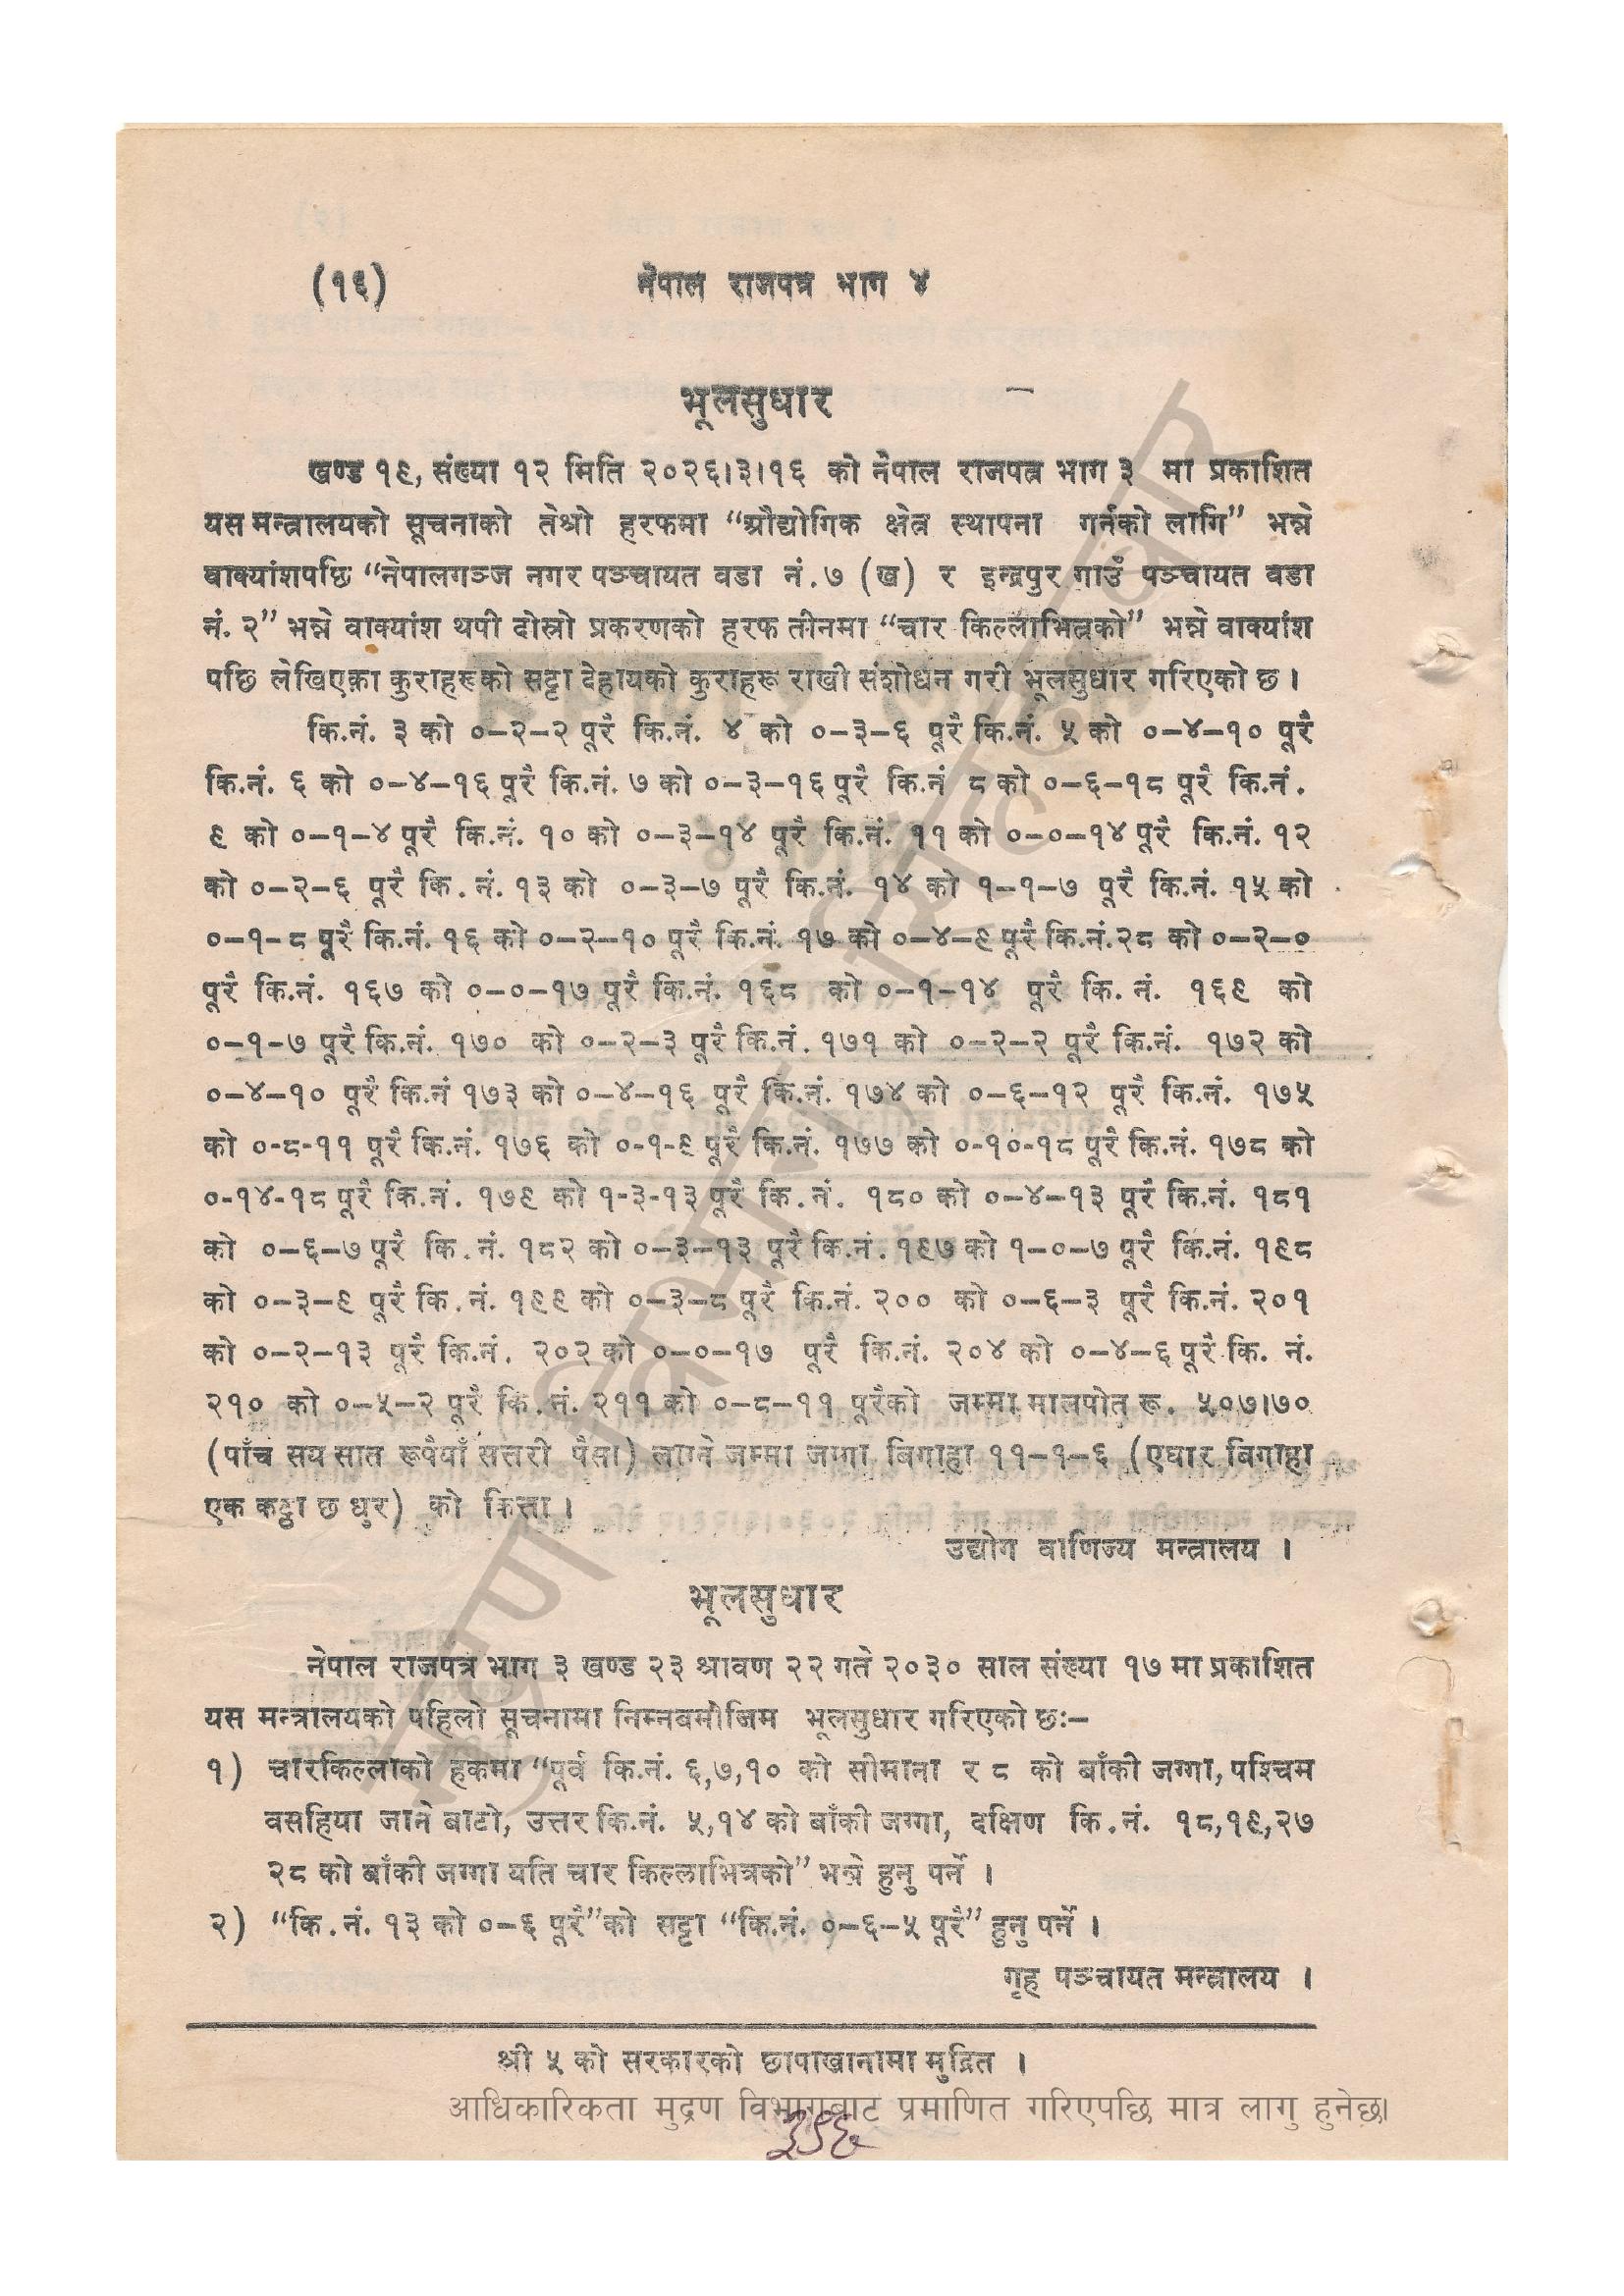 (१६) नेपाल राजपत्र भाग ४
भूलसुधार
खण्ड १९, संख्या १२ मिति २०२६।३।१६ को नेपाल राजपत्र भाग ३ मा प्रकाशित
यस मन्त्रालयको सूचनाको तेश्रो हरफमा “औद्योगिक क्षेत्र स्थापना गर्नको लागि” भन्ने
वाक्यांशपछि “नेपालगञ्ज नगर पञ्चायत वडा नं. ७ (ख) र इन्द्रपुर गाउँ पञ्चायत वडा
नं. २” भन्ने वाक्यांश थपी दोस्रो प्रकरणको हरफ तीनमा “चार किल्लाभित्रको” भन्ने वाक्यांश
पछि लेखिएका कुराहरूको सट्टा देहायको कुराहरू राखी संशोधन गरी भूलसुधार गरिएको छ ।
कि.नं. ३ को ०–२–२ पूरै कि.नं. ४ को ०–३–६ पूरै कि.नं. ५ को ०–४–१० पूरै
कि.नं. ६ को ०–४–१६ पूरै कि.नं. ७ को ०–३–१६ पूरै कि.नं ८ को ०–६–१८ पूरै कि.नं.
९ को ०–१–४ पूरै कि.नं. १० को ०–३–१४ पूरै कि.नं. ११ को ०–०–१४ पूरै कि.नं. १२
को ०–२–६ पूरै कि. नं. १३ को ०–३–७ पूरै कि.नं. १४ को १–१–७ पूरै कि.नं. १५ को
०–१–८ पूरै कि.नं. १६ को ०–२–१० पूरै कि.नं. १७ को ०–४–९ पूरै कि.नं.२८ को ०–२–०
पूरै कि.नं. १६७ को ०–०–१७ पूरै कि.नं. १६८ को ०–१–१४ पूरै कि. नं. १६९ को
०–१–७ पूरै कि.नं. १७० को ०–२–३ पूरै कि.नं. १७१ को ०–२–२ पूरै कि.नं. १७२ को
०–४–१० पूरै कि.नं १७३ को ०–४–१६ पूरै कि.नं. १७४ को ०–६–१२ पूरै कि.नं. १७५
को ०-८-११ पूरै कि.नं. १७६ को ०-१-९ पूरै कि.नं. १७७ को ०-१०-१८ पूरै कि.नं. १७८ को
०-१४-१८ पूरै कि.नं. १७९ को १-३-१३ पूरै कि. नं. १८० को ०–४–१३ पूरै कि.नं. १८१
को ०–६–७ पूरै कि. नं. १८२ को ०–३–१३ पूरै कि.नं. १९७ को १–०–७ पूरै कि.नं. १९८
को ०–३–९ पूरै कि. नं. १९९ को ०–३–८ पूरै कि.नं. २०० को ०–६–३ पूरै कि.नं. २०१
को ०–२–१३ पूरै कि.नं. २०२ को ०–०–१७ पूरै कि.नं. २०४ को ०–४–६ पूरै कि. नं.
२१० को ०–५–२ पूरै कि. नं. २११ को ०–८–११ पूरैको जम्मा मालपोत रू. ५०७।७०
(पाँच सय सात रूपैयाँ सत्तरी पैसा) लाग्ने जम्मा जग्गा बिगाहा ११–१–६ (एघार बिगाहा
एक कठ्ठा छ धुर) को कित्ता ।
उद्योग वाणिज्य मन्त्रालय ।
भूलसुधार
नेपाल राजपत्र भाग ३ खण्ड २३ श्रावण २२ गते २०३० साल संख्या १७ मा प्रकाशित
यस मन्त्रालयको पहिलो सूचनामा निम्नबमोजिम भूलसुधार गरिएको छः–
१) चारकिल्लाको हकमा “पूर्व कि.नं. ६,७,१० को सीमाना र ८ को बाँकी जग्गा, पश्चिम
वसहिया जाने बाटो, उत्तर कि.नं. ५,१४ को बाँकी जग्गा, दक्षिण कि. नं. १८,१९,२७
२८ को बाँकी जग्गा यति चार किल्लाभित्रको” भन्ने हुनु पर्ने ।
२) “कि. नं. १३ को ०–६ पूरै”को सट्टा “कि.नं. ०–६–५ पूरै” हुनु पर्ने ।
गृह पञ्चायत मन्त्रालय ।
श्री ५ को सरकारको छापाखानामा मुद्रित ।
आधिकारिकता मुद्रण विभागबाट प्रमाणित गरिएपछि मात्र लागु हुनेछ।
३५६